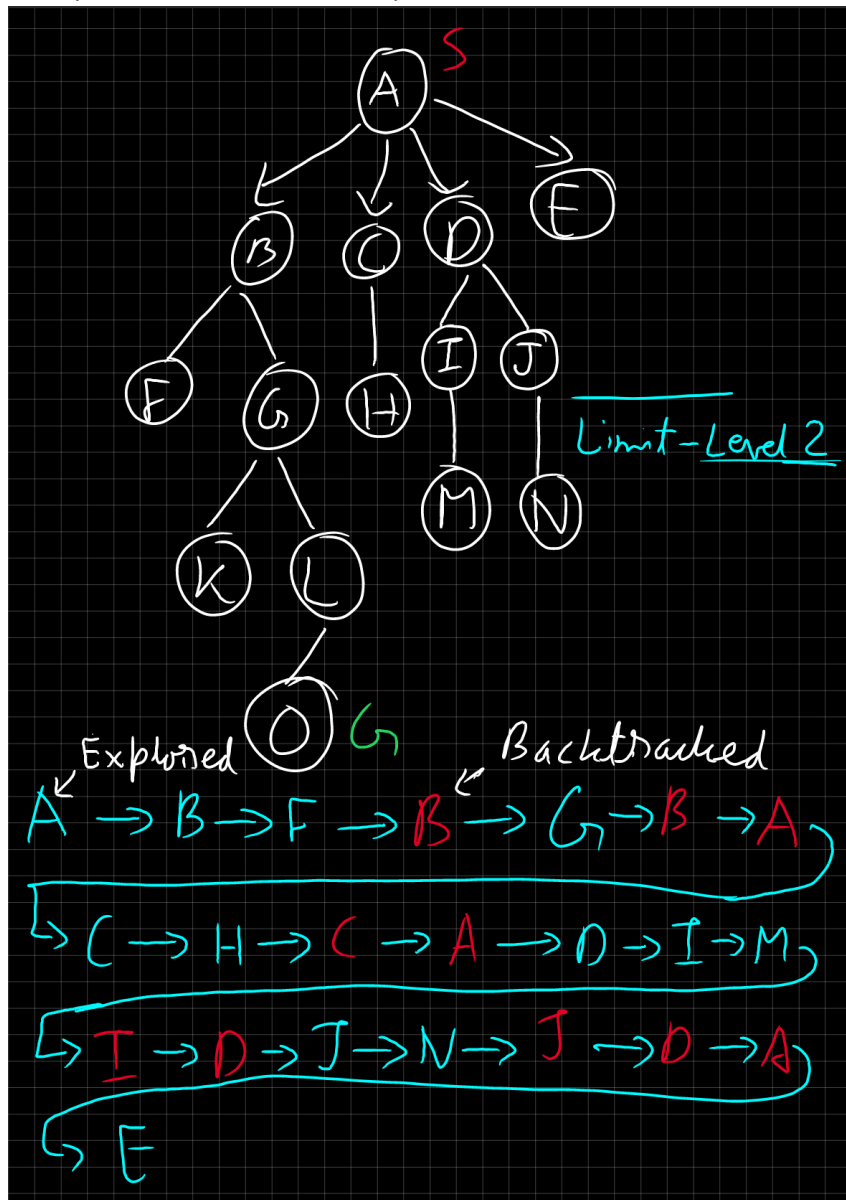 S
A
B C D E
F G H I J
Limit-Level 2
M N
K L
O G
Explored Backtracked
A → B → F → B → G → B → A
↳ C → H → C → A → D → I → M
↳ I → D → J → N → J → D → A
↳ E